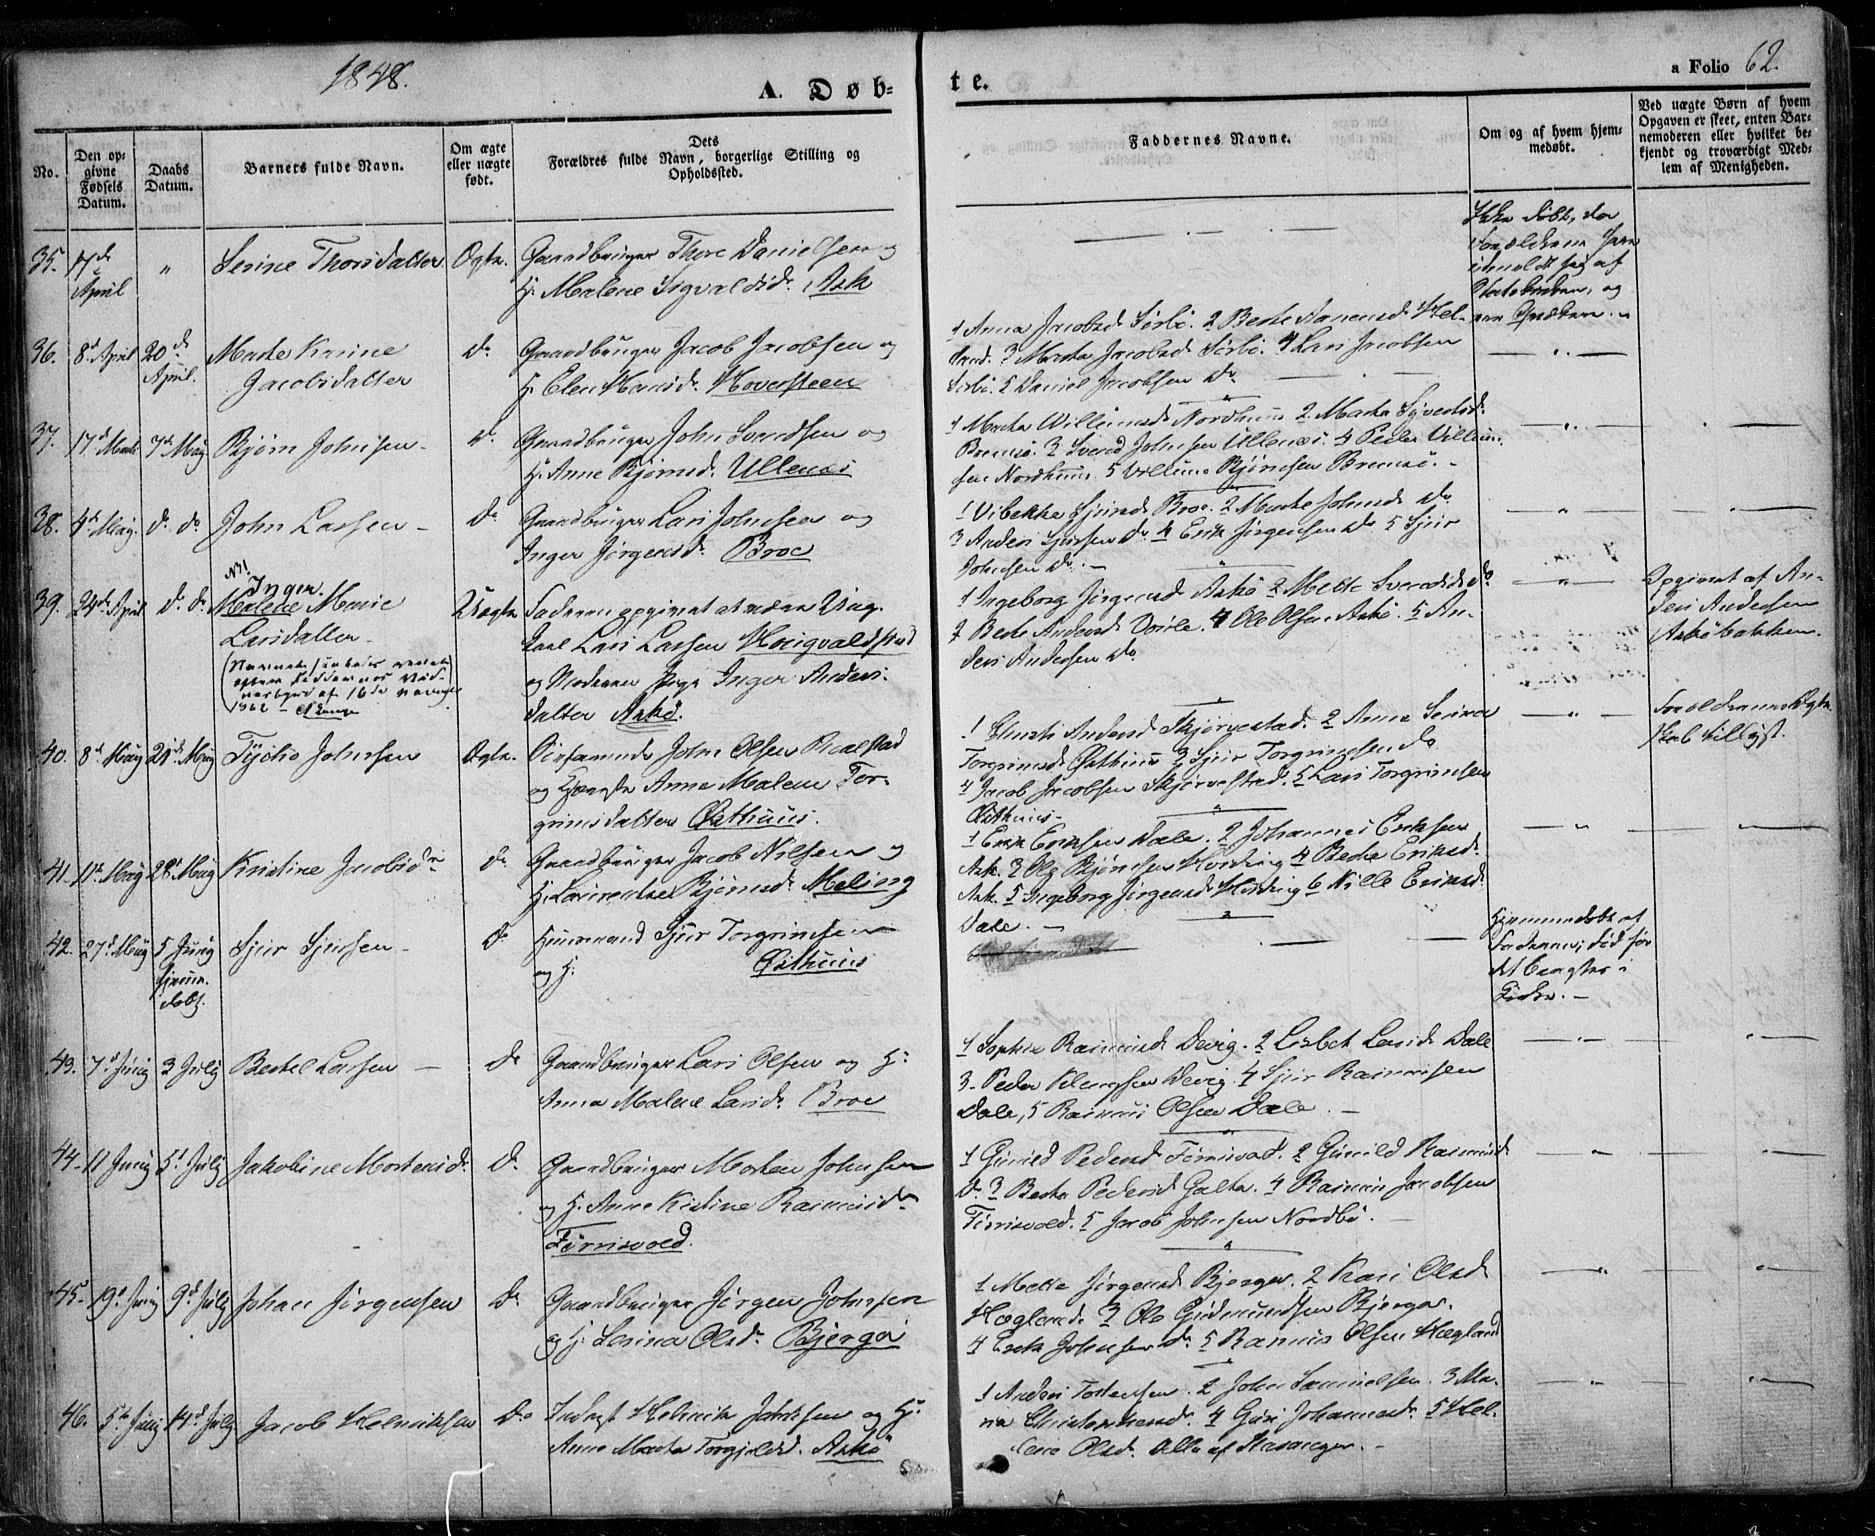 1848.
A. Døb-
te.
a Folio 62
No.
Den op-
givne
Fødsels
Datum.
Daabs
Datum.
Barnets fulde Navn.
Om ægte
eller uægte
født.
Dets
Forældres fulde Navn, borgerlige Stilling og
Opholdssted.
Faddernes Navne.
Om og af hvem hjem-
medøbt.
Ved uægte Børn af hvem
Opgaven er skeet, enten Bar-
nemoderen eller hvilket be-
kjendt og troværdigt Med-
lem af Menigheden.
35. 17de
April
"
Serine Thorsdatter
Ægte.
Gaardbruger Thore Danielsen og
H. Malene Sigvaldsd. Ask
Ikke døbt, da
Forældrene have
udmeldt sig af
Statskirken, og
ere Qvækere.
36. 8d April
20de
April.
Marte Karine
Jacobsdatter
Do
Gaardbruger Jacob Jacobsen og
H. Elen Hansd. Hoversteen
1 Anna Jacobsd Sørbø. 2 Berte Hel-
land. 3 Marta Jacobsd Sørbø. 4 Lars Jacobsen
Sørbø. 5 Daniel Jacobsen Do
37. 17d Marts
7de May
Bjørn Johnsen
Do
Gaardbruger John Svendsen og
H. Anne Bjørnsd. Ullenæs
1 Marta Willumsd Nordhuus 2. Marta
Bremsø. 3 Svend Johnsen Ullenæs. 4 Peder Villum-
sen Nordhuus. 5 Villum Bjørnsen Bremsø.
38. 4de May.
do do
John Larsen
Do
Gaardbruger Lars Johnsen og
Inger Jørgensd. Broe
1 Vibekke Sjursd Broe. 2 Marte Johnsd Do
3 Anders Sjursen Do 4 Erik Jørgensen Do 5 Sjur
Johnsen Do
39. 24de April
do do
NB!
Inger
Malene Marie
Larsdatter
(Navnet
efter Faddernes Vid-
nesbyrd af 16de
1862
Uægte
Faderen opgivet at være Ung-
karl Lars Larsen Haugvaldstad
og Moderen Pige Inger Anders-
datter Askø.
1 Ingeborg Jørgensd Askø 2 Mette Svendsd Do
3 Berte Andersd Voile. 4 Ole Olsen Askø. 5 An-
ders Andersen Do
Opgivet af An-
ders Andersen
Askøbakken.
40. 8de May
21de May
Tycho Johnsen
Ægte.
John Olsen Realstad
og Anne Malene Tor-
grimsdatter Østhuus.
1 Andersd Skjørvestad. 2 Anne Serina
Torgrimsd Østhuus 3 Sjur Torgrimsen do
4 Jacob Jacobsen Skjørvestad. 5 Lars Torgrimsen
Østhuus.
Forældrenes Ægte-
skab tillyst.
41. 11de May
28de May
Kristine Jacobsdr
do
Gaardbruger Jacob Nilsen og
H. Laurentse Bjørnsd. Meling
1 Erik Eriksen Dale. 2 Johannes Eriksen
Ask. 3 Ole Bjørnsen Hording 4 Berte Eriksd.
Ask. 5 Ingeborg Jørgensd Hording 6 Nille Eriksd.
Dale.
42. 27d May
5 Juny
hjemme-
døbt.
Sjur Sjursen
do
Huusmand Sjur Torgrimsen
og H. Østhuus
Hjemmedøbt af
Faderen; død før
det bragtes i
Kirke.
43. 7d Juny
3 July
Bertel Larsen
Do
Gaardbruger Lars Olsen og H:
Anna Malene Larsd. Broe
1 Sophie Rasmusd Devig. 2 Lisbet Larsd Dale
3. Peder Devig. 4 Sjur Rasmusen
Dale, 5 Rasmus Olsen Dale.
44. 11 Juny
5d July
Jakobine Mortensd.
Do
Gaardbruger Morten Johnsen
og H. Anne Kistine Rasmusd
Førrisvold.
1 Gunild Pedersd Førrisvold. 2 Gunild Rasmusd
Do. 3 Berta Pedersd Galta. 4 Rasmus Jacobsen
Førrisvold. 5 Jacob Johnsen Nordbø.
45. 19d Juny
9d July
Johan Jørgensen
Do
Gaardbruger Jørgen Johnsen
og H. Serina Olsd. Bjergø
1 Mette Jørgensd Bjergø. 2 Kari Olsd
Hægland. 3 Ole Gudmundsen Bjergø.
4 Erik Johnsen Do. 5 Rasmus Olsen Hægland
46. 5te Juny
14d July
Jacob Helmiksen
Do
Inderst Helmik Jakobsen og H:
Anne Marta Torgjelsd. Askø
1 Anders Tostensen. 2 John Samuelsen. 3 Ma-
ria 4 Guri Johannesd. 5 Hel-
lene Olsd. Alle af Stavanger.